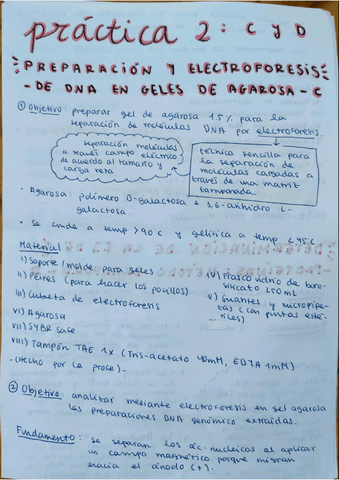 práctica 2: C y D
PREPARACIÓN Y ELECTROFORESIS
- DE DNA EN GELES DE AGAROSA - C
① Objetivo: preparar gel de agarosa 1.5% para la
separación de moléculas DNA por electroforesis.
separación moléculas
a través campo eléctrico
de acuerdo al tamaño y
carga neta
técnica sencilla para
la separación de
moléculas cargadas a
través de una matriz
tamponada.
· Agarosa: polímero D-galactosa + 3,6-anhidro L-
galactosa
· Se funde a temp >90 C y gelifica a temp <45 C
Material
I) Soporte / molde para geles
II) Peines (para hacer los pocillos)
III) Cubeta de electroforesis
IV) Frasco vidrio de boro-
silicato 250mL
V) Guantes y micropipe-
tas (con puntas esté-
riles)
VI) Agarosa
VII) SYBR safe
VIII) Tampón TAE 1x (Tris-acetato 40mM, EDTA 1mM)
-(Hecho por la profe)-
② Objetivo: analizar mediante electroforesis en gel agarosa
las preparaciones DNA genómico extraídas.
Fundamento: se separan los ác. nucleicos al aplicar
un campo magnético porque migran
hacia el ánodo (+).